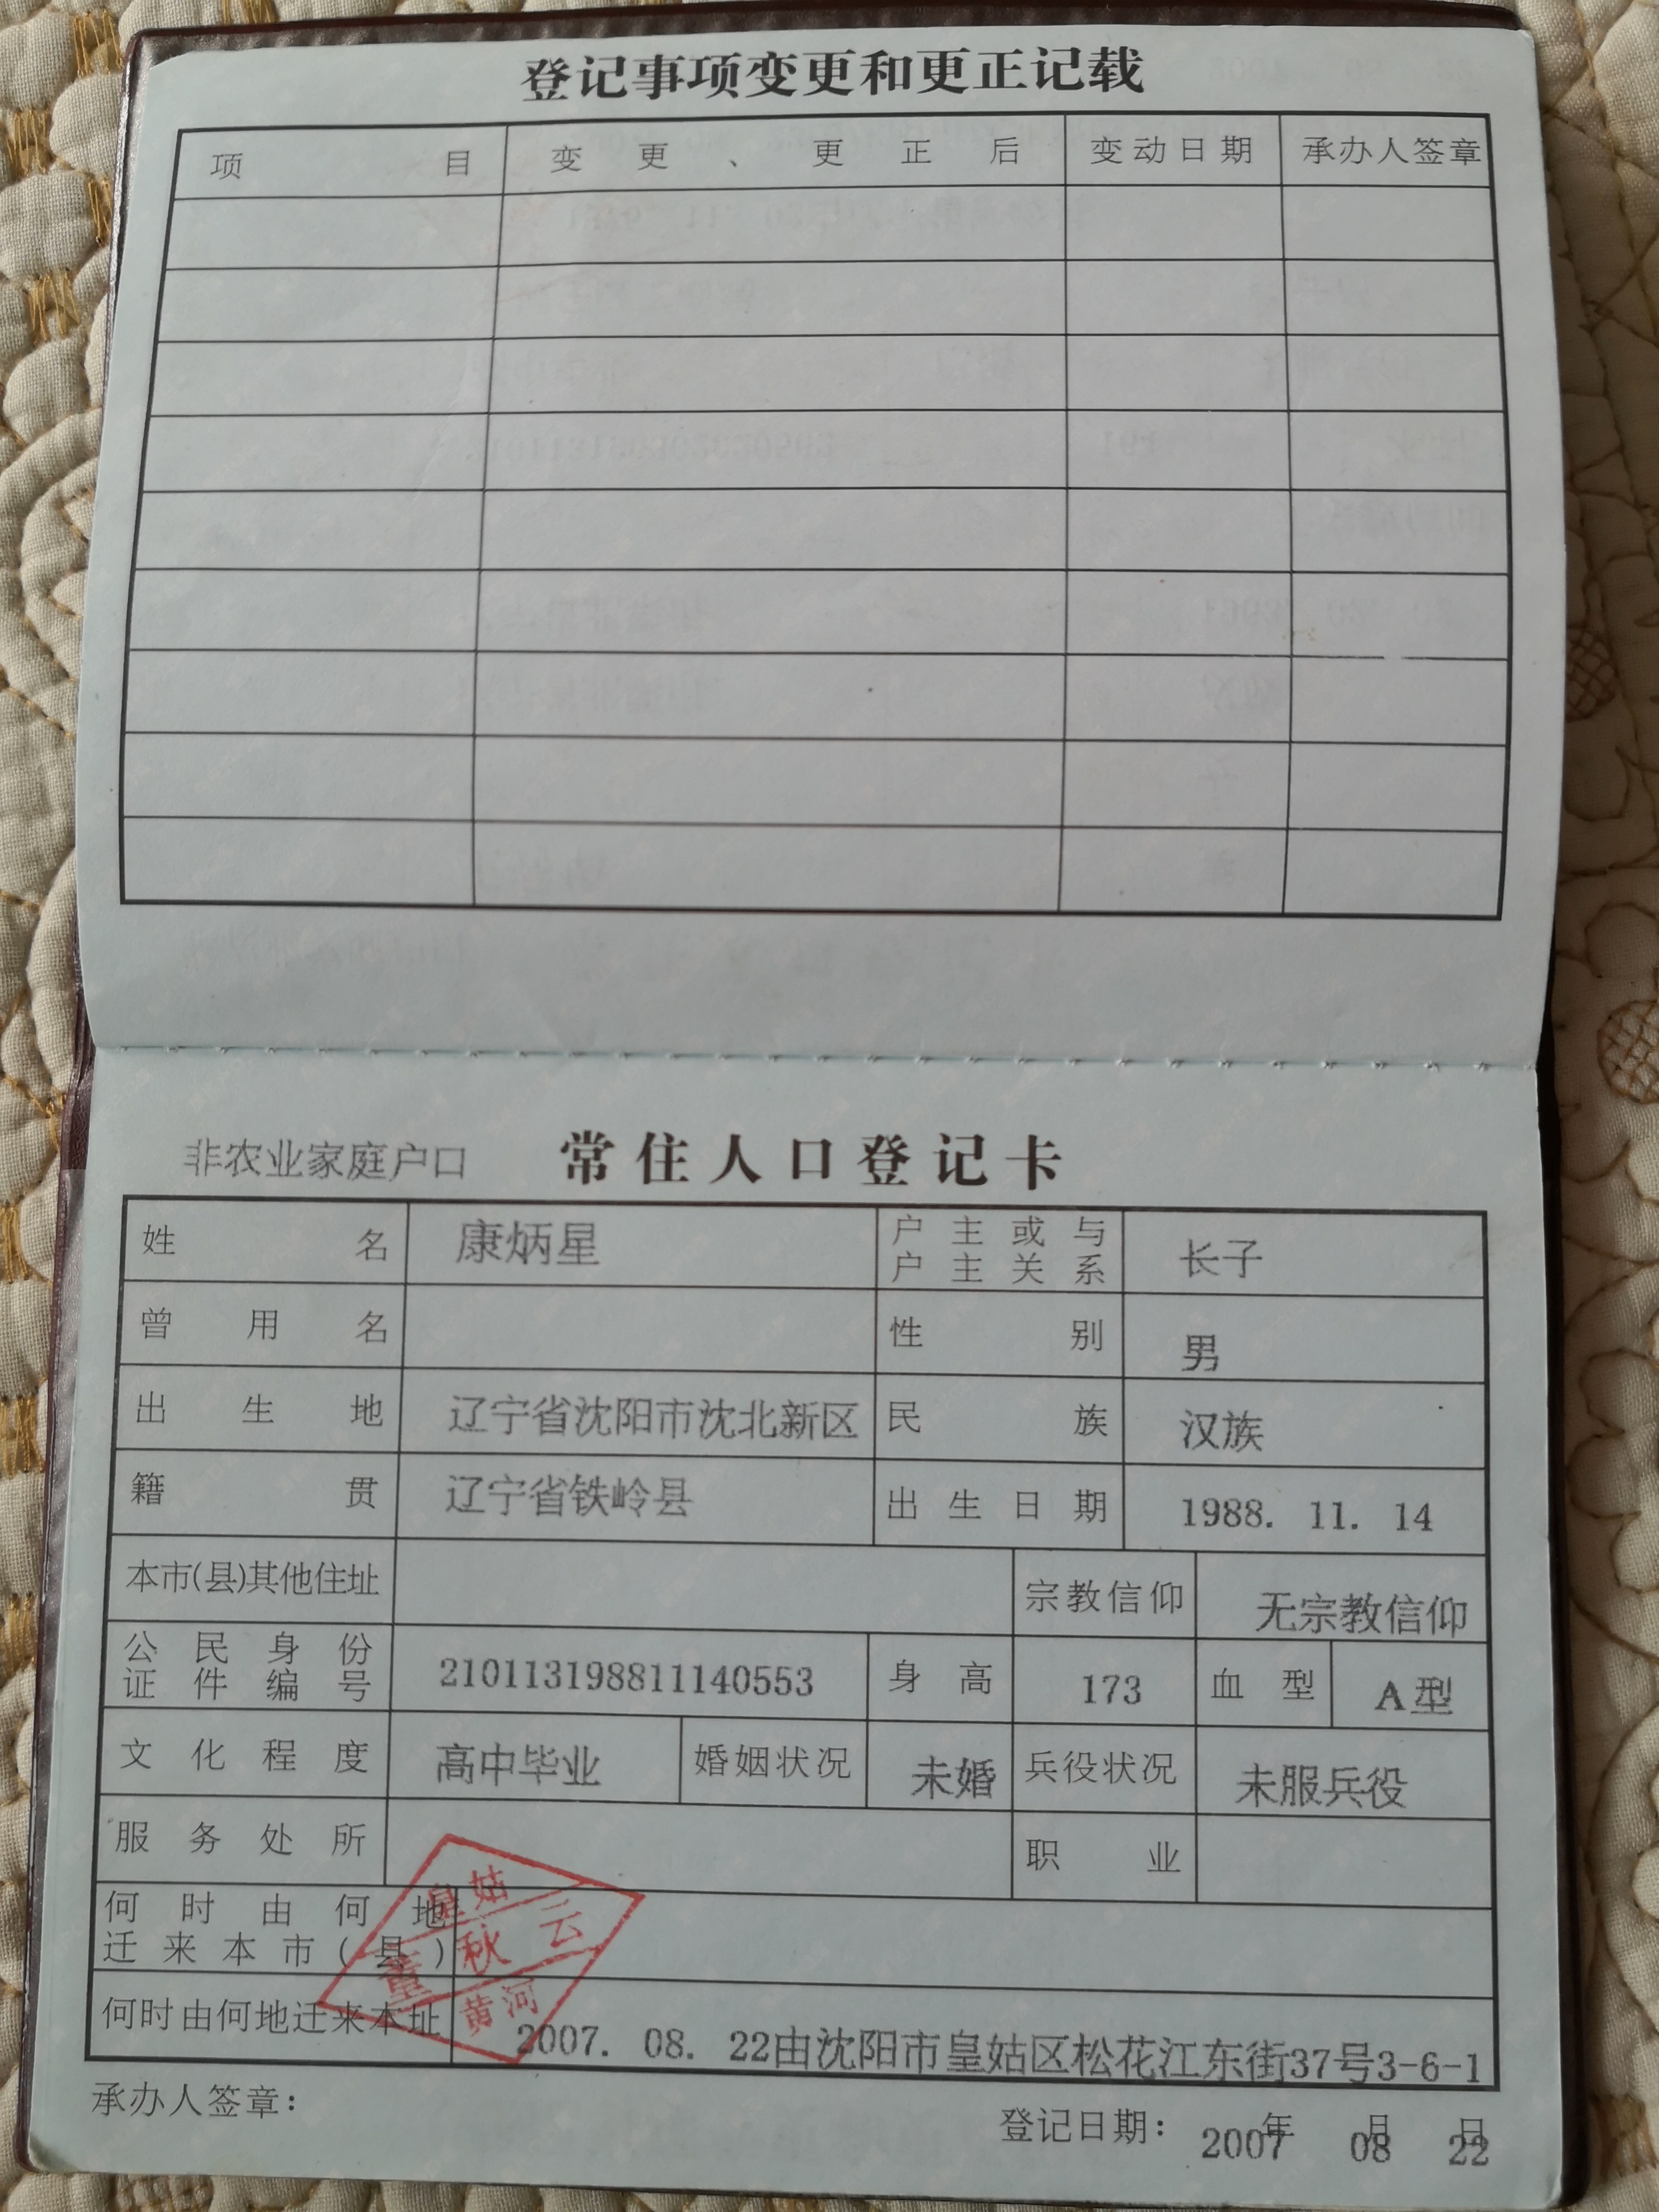 登记事项变更和更正记载
项目 变更、更正后 变动日期 承办人签章
非农业家庭户口 常住人口登记卡
姓名 康炳星 户主或与户主关系 长子
曾用名 性别 男
出生地 辽宁省沈阳市沈北新区 民族 汉族
籍贯 辽宁省铁岭县 出生日期 1988. 11. 14
本市(县)其他住址 宗教信仰 无宗教信仰
公民身份证件编号 210113198811140553 身高 173 血型 A型
文化程度 高中毕业 婚姻状况 未婚 兵役状况 未服兵役
服务处所 职业
何时由何地迁来本市(县)
何时由何地迁来本址 2007. 08. 22由沈阳市皇姑区松花江东街37号3-6-1
皇姑
董秋云
黄河
承办人签章：
登记日期： 2007年 08月 22日